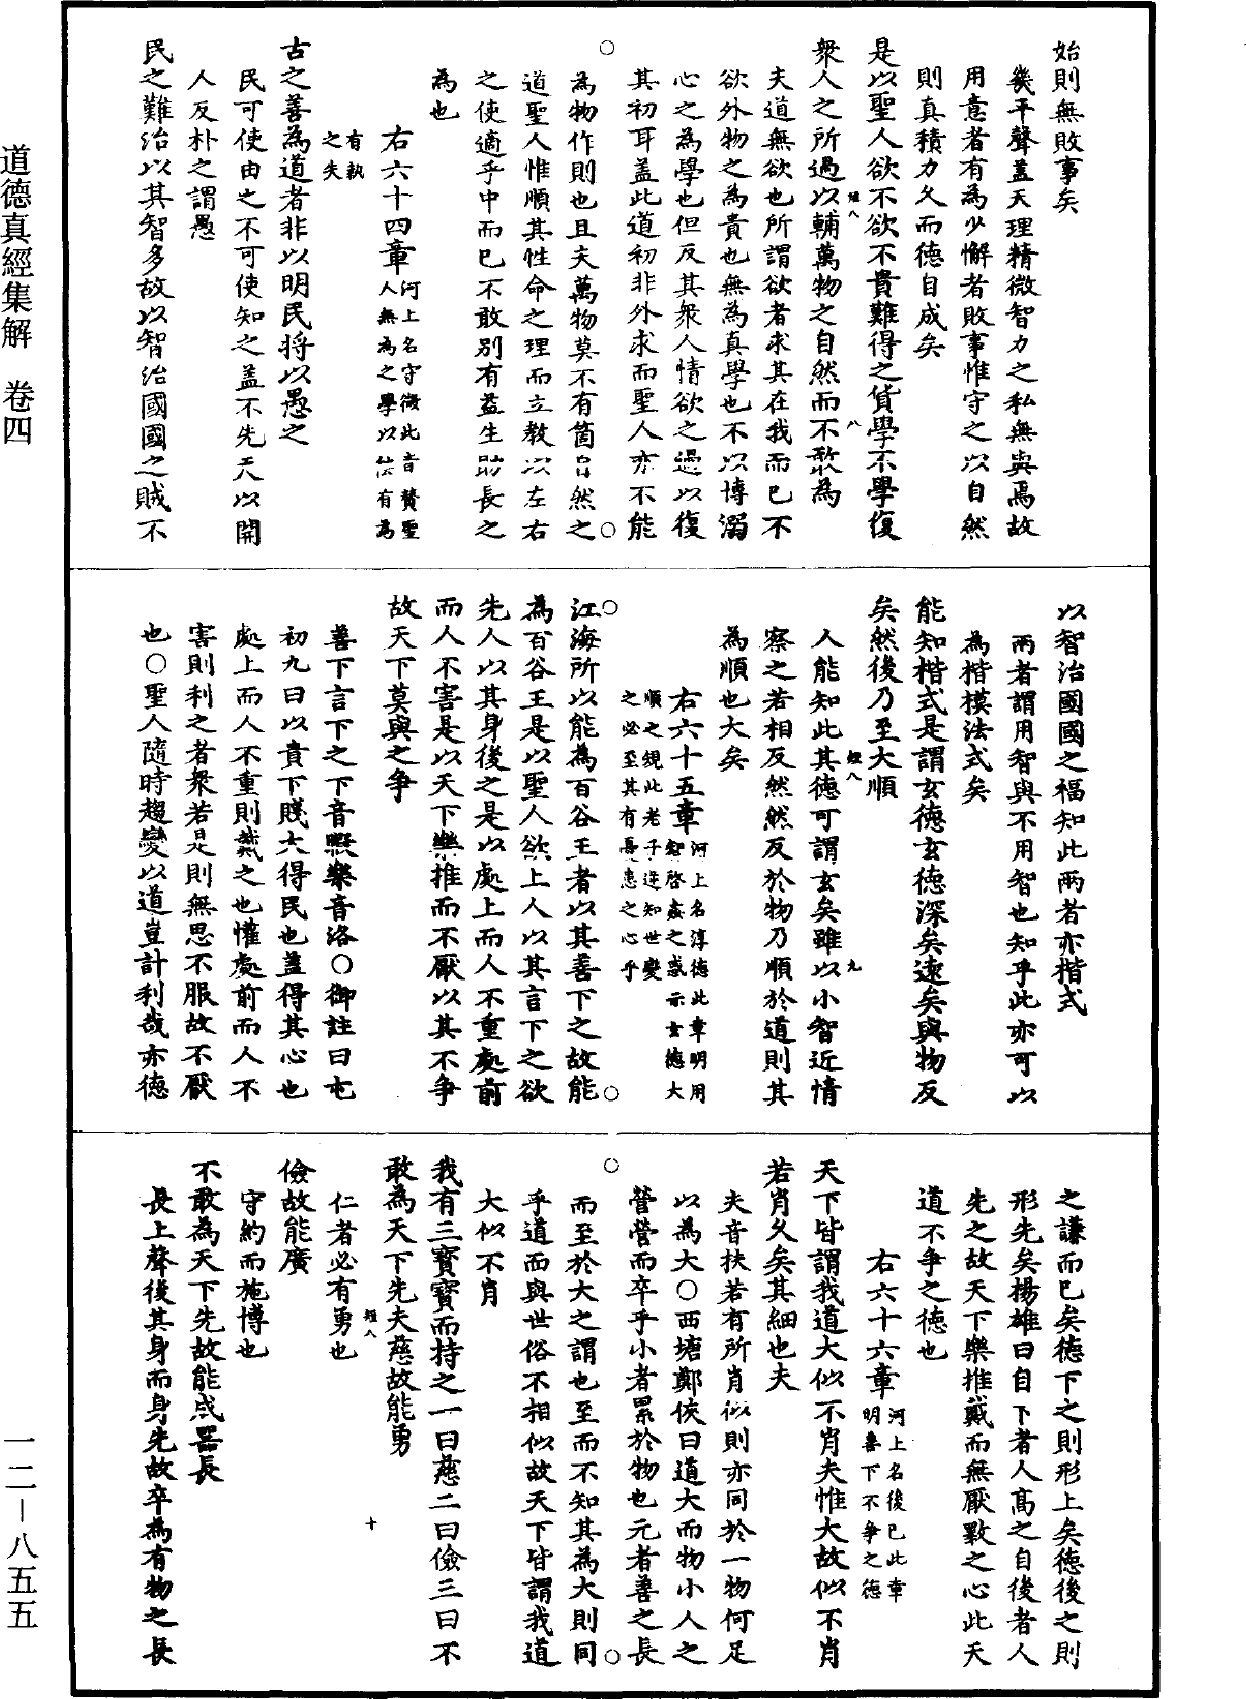 始則無敗事矣
幾平聲蓋天理精微智力之私無與焉故
用意者有為少懈者敗事惟守之以自然
則真積力久而德自成矣
是以聖人欲不欲不貴難得之貨學不學復
衆人之所過以輔萬物之自然而不敢為
夫道無欲也所謂欲者求其在我而已不
欲外物之為貴也無為真學也不以博溺
心之為學也但反其衆人情欲之過以復
其初耳盖此道初非外求而聖人亦不能
為物作則也且夫萬物莫不有箇自然之
道聖人惟順其性命之理而立教以左右
之使適乎中而已不敢別有益生助長之
為也
右六十四章河上名守微此音贊聖
人無為之學以法有為
有執
之失
古之善為道者非以明民將以愚之
民可使由之不可使知之盖不先天以開
人反朴之謂愚
民之難治以其智多故以智治國國之賊不
以智治國國之福知此兩者亦楷式
兩者謂用智與不用智也知乎此亦可以
為楷模法式矣
能知楷式是謂玄德玄德深矣遠矣與物反
矣然後乃至大順
人能知此其德可謂玄矣雖以小智近情
察之若相反然然反於物乃順於道則其
為順也大矣
右六十五章河上名淳德此章明用
智啓姦之惑示玄德大
順之觀此老子逆知世變
之必至其有憂患之心乎
江海所以能為百谷王者以其善下之故能
為百谷王是以聖人欲上人以其言下之欲
先人以其身後之是以處上而人不重處前
而人不害是以天下樂推而不厭以其不争
故天下莫與之争
善下言下之下音暇樂音洛○御註曰屯
初九曰以貴下賤大得民也盖得其心也
處上而人不重則戴之也懽處前而人不
害則利之者衆若是則無思不服故不厭
也○聖人隨時趨變以道豈計利哉亦德
之謙而已矣德下之則形上矣德後之則
形先矣楊雄曰自下者人高之自後者人
先之故天下樂推戴而無厭斁之心此天
道不争之德也
右六十六章河上名後已此章
明善下不争之德
天下皆謂我道大似不肖夫惟大故似不肖
若肖久矣其細也夫
夫音扶若有所肖似則亦同於一物何足
以為大○西塘鄭俠曰道大而物小人之
營營而卒乎小者累於物也元者善之長
而至於大之謂也至而不知其為大則同
乎道而與世俗不相似故天下皆謂我道
大似不肖
我有三寶寶而持之一曰慈二曰儉三曰不
敢為天下先夫慈故能勇
仁者必有勇也
儉故能廣
守約而施博也
不敢為天下先故能成器長
長上聲後其身而身先故卒為有物之長
道德真經集解　卷四
一二－八五五